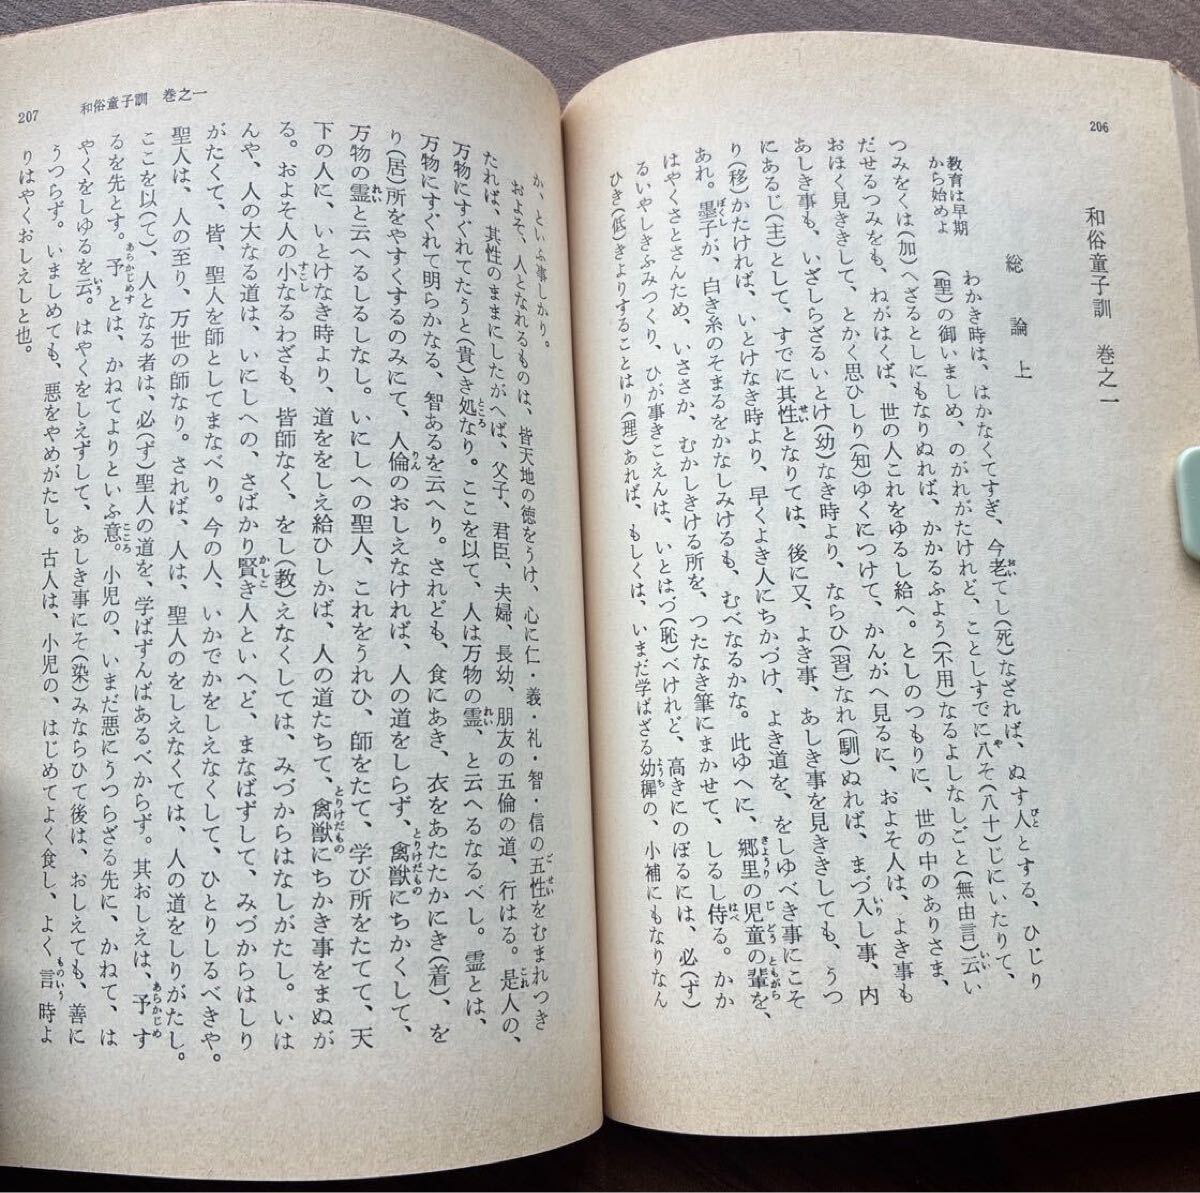 206
和俗童子訓　巻之一
総論上
教育は早期
から始めよ
わかき時は、はかなくてすぎ、今老てし(死)なざれば、ぬす人とする、ひじり
(聖)の御いましめ、のがれがたけれど、ことしすでに八そ(八十)じにいたりて、
つみをくは(加)へざるとしにもなりぬれば、かかるふよう(不用)なるよしなしごと(無由言)云い
だせるつみをも、ねがはくば、世の人これをゆるし給へ。としのつもりに、世の中のありさま、
おほく見ききして、とかく思ひしり(知)ゆくにつけて、かんがへ見るに、およそ人は、よき事も
あしき事も、いざしらざるいとけ(幼)なき時より、ならひ(習)なれ(馴)ぬれば、まづ入し事、内
にあるじ(主)として、すでに其性となりては、後に又、よき事、あしき事を見ききしても、うつ
り(移)かたければ、いとけなき時より、早くよき人にちかづけ、よき道を、をしゆべき事にこそ
あれ。墨子が、白き糸のそまるをかなしみけるも、むべなるかな。此ゆへに、郷里の児童の輩を、
はやくさとさんため、いささか、むかしきける所を、つたなき筆にまかせて、しるし侍る。かか
るいやしきふみつくり、ひが事きこえんは、いとはづ(恥)べけれど、高きにのぼるには、必(ず)
ひき(低)きよりすることはり(理)あれば、もしくは、いまだ学ばざる幼穉の、小補にもなりなん
和俗童子訓　巻之一
207
か、といふ事しかり。
およそ、人となれるものは、皆天地の徳をうけ、心に仁・義・礼・智・信の五性をむまれつき
たれば、其性のままにしたがへば、父子、君臣、夫婦、長幼、朋友の五倫の道、行はる。是人の、
万物にすぐれてたうと(貴)き処なり。ここを以て、人は万物の霊、と云へるなるべし。霊とは、
万物にすぐれて明らかなる、智あるを云へり。されども、食にあき、衣をあたたかにき(着)、を
り(居)所をやすくするのみにて、人倫のおしえなければ、人の道をしらず、禽獣にちかくして、
万物の霊と云へるしるしなし。いにしへの聖人、これをうれひ、師をたて、学び所をたてて、天
下の人に、いとけなき時より、道ををしえ給ひしかば、人の道たちて、禽獣にちかき事をまぬが
る。およそ人の小なるわざも、皆師なく、をし(教)えなくしては、みづからはなしがたし。いは
んや、人の大なる道は、いにしへの、さばかり賢き人といへど、まなばずして、みづからはしり
がたくて、皆、聖人を師としてまなべり。今の人、いかでかをしえなくして、ひとりしるべきや。
聖人は、人の至り、万世の師なり。されば、人は、聖人のをしえなくては、人の道をしりがたし。
ここを以(て)、人となる者は、必(ず)聖人の道を、学ばずんばあるべからず。其おしえは、予す
るを先とす。予とは、かねてよりといふ意。小児の、いまだ悪にうつらざる先に、かねて、は
やくをしゆるを云。はやくをしえずして、あしき事にそ(染)みならひて後は、おしえても、善に
うつらず。いましめても、悪をやめがたし。古人は、小児の、はじめてよく食し、よく言時よ
りはやくおしえしと也。